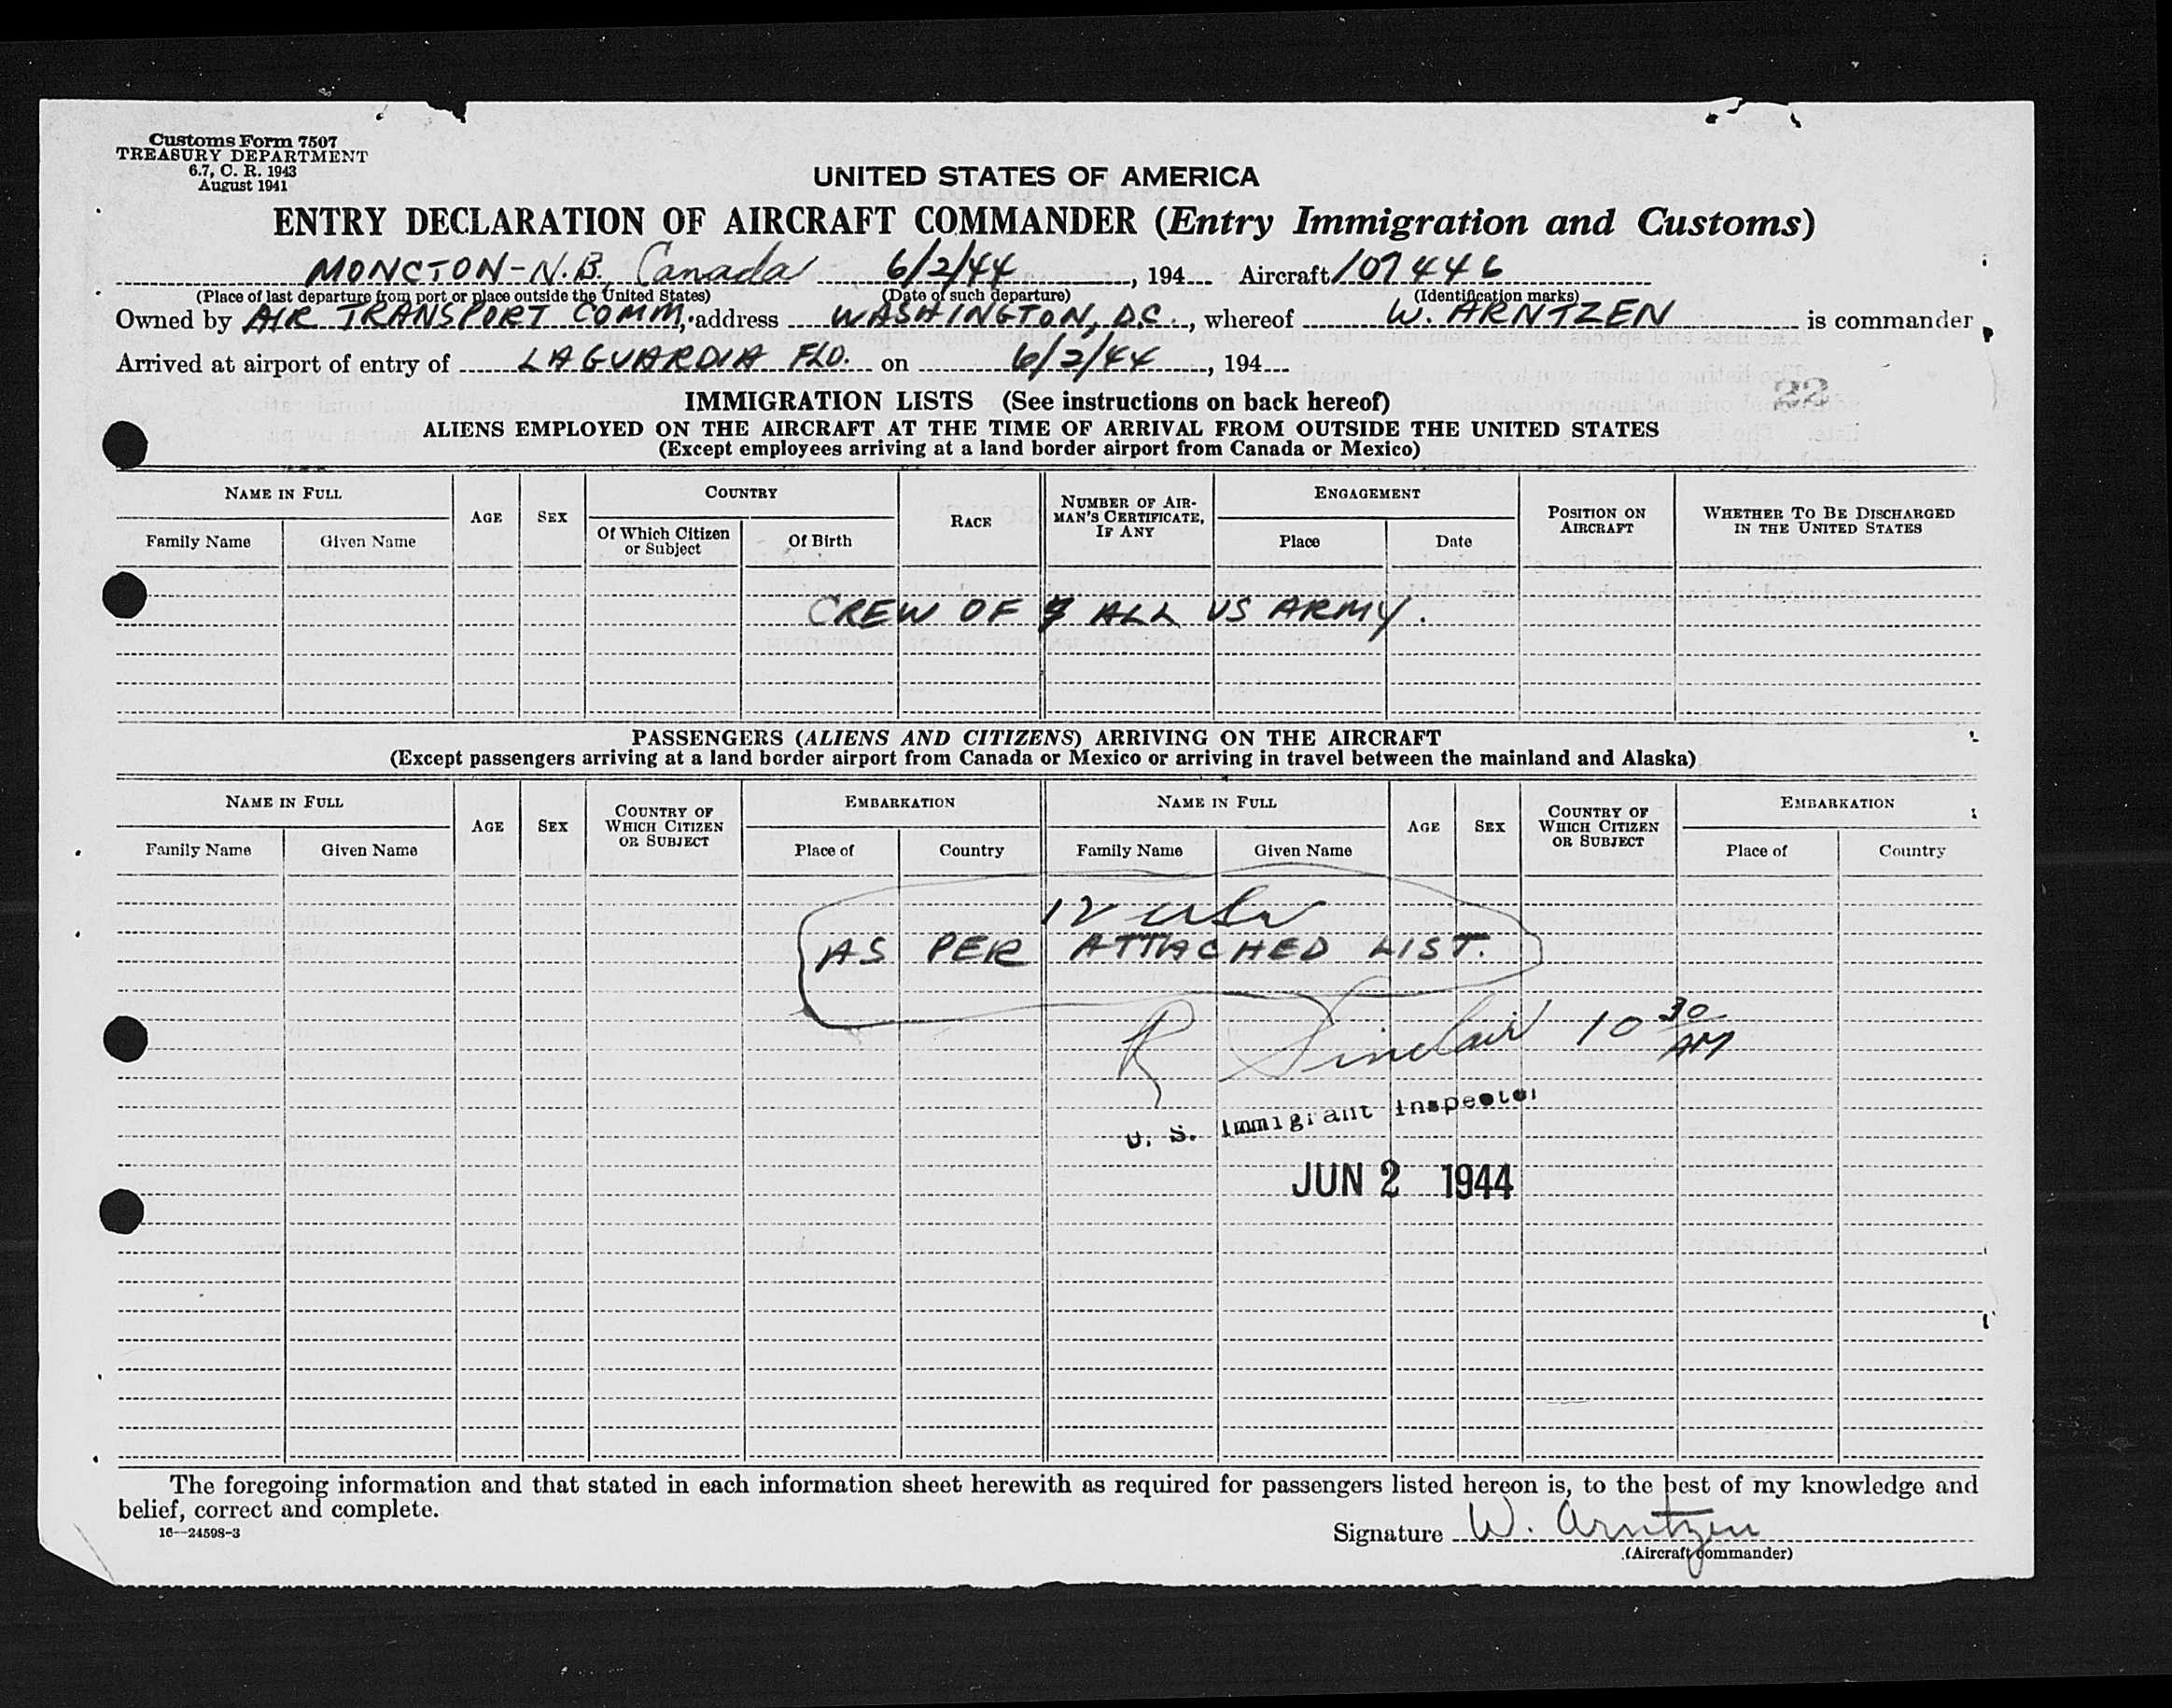 Customs Form 7507
TREASURY DEPARTMENT
6.7, C. R. 1943
August 1941
UNITED STATES OF AMERICA
ENTRY DECLARATION OF AIRCRAFT COMMANDER (Entry Immigration and Customs)
MONCTON-N.B. Canada 6/2/44, 194 Aircraft 107446
(Place of last departure from port or place outside the United States) (Date of such departure) (Identification marks)
Owned by AIR TRANSPORT COMM, address WASHINGTON, D.C., whereof W. ARNTZEN is commander
Arrived at airport of entry of LAGUARDIA FLD. on 6/2/44, 194
22
IMMIGRATION LISTS (See instructions on back hereof)
ALIENS EMPLOYED ON THE AIRCRAFT AT THE TIME OF ARRIVAL FROM OUTSIDE THE UNITED STATES
(Except employees arriving at a land border airport from Canada or Mexico)
NAME IN FULL
Family Name Given Name
AGE
SEX
COUNTRY
Of Which Citizen or Subject
Of Birth
RACE
NUMBER OF AIR-
MAN'S CERTIFICATE,
IF ANY
ENGAGEMENT
Place Date
POSITION ON
AIRCRAFT
WHETHER TO BE DISCHARGED
IN THE UNITED STATES
CREW OF ALL US ARMY.
PASSENGERS (ALIENS AND CITIZENS) ARRIVING ON THE AIRCRAFT
(Except passengers arriving at a land border airport from Canada or Mexico or arriving in travel between the mainland and Alaska)
NAME IN FULL
Family Name Given Name
AGE
SEX
COUNTRY OF
WHICH CITIZEN
OR SUBJECT
EMBARKATION
Place of Country
NAME IN FULL
Family Name Given Name
AGE
SEX
COUNTRY OF
WHICH CITIZEN
OR SUBJECT
EMBARKATION
Place of Country
12
AS PER ATTACHED LIST.
R Sinclair 10 30 AM
U. S. Immigrant Inspector
JUN 2 1944
The foregoing information and that stated in each information sheet herewith as required for passengers listed hereon is, to the best of my knowledge and
belief, correct and complete.
16—24598-3
Signature W. Arntzen
(Aircraft commander)